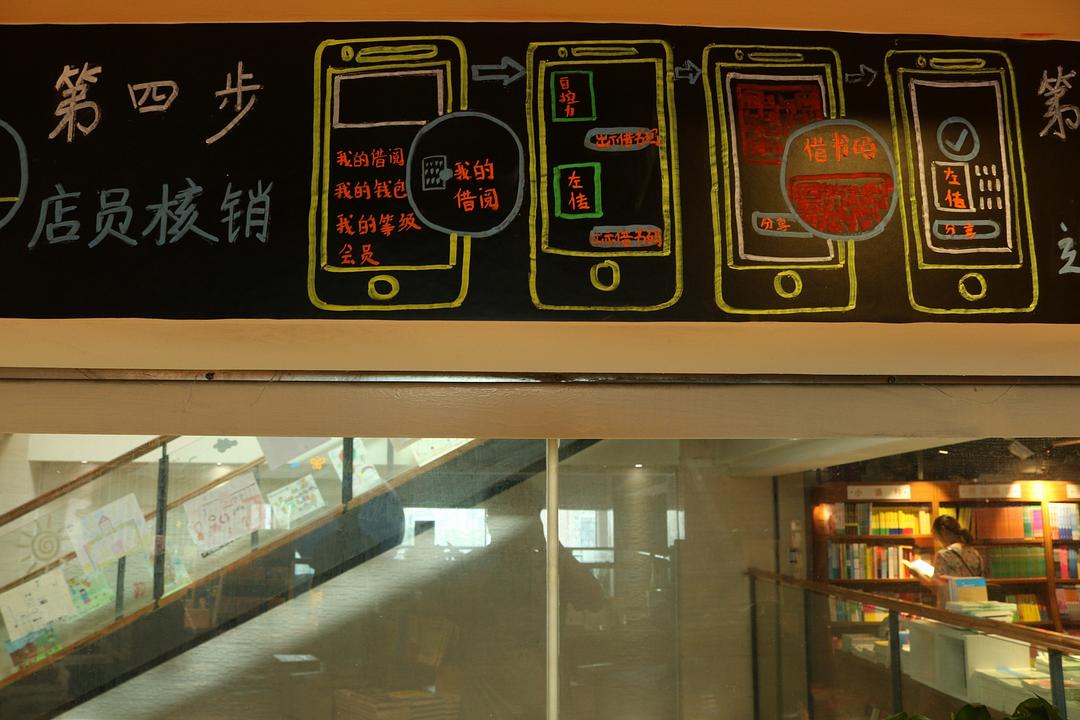 第四步
店员核销
我的借阅
我的钱包
我的等级
会员
我的
借阅
自控力
出示借书码
左佳
出示借书码
借书码
分享
左佳
分享
第